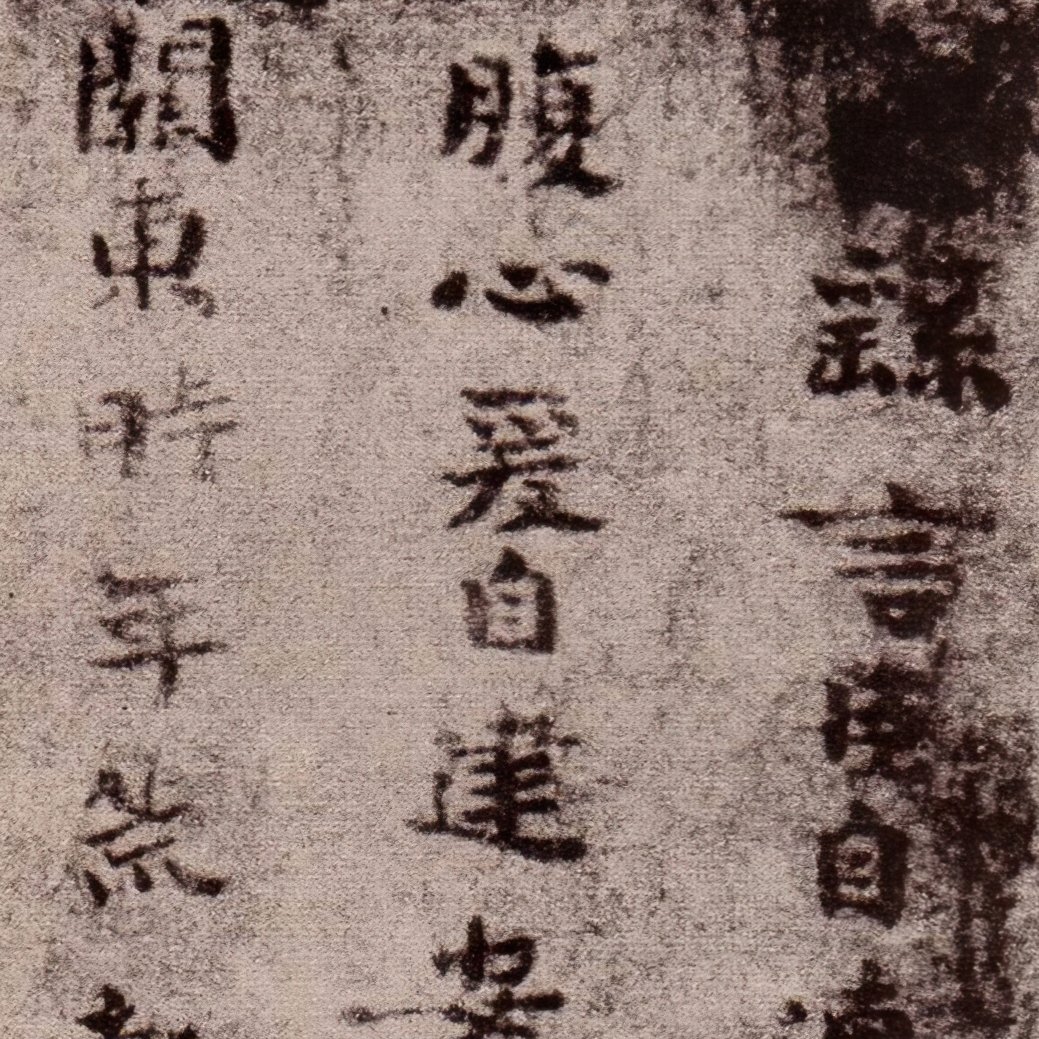 謡言虞自
腹心爰自建
關東時年荒